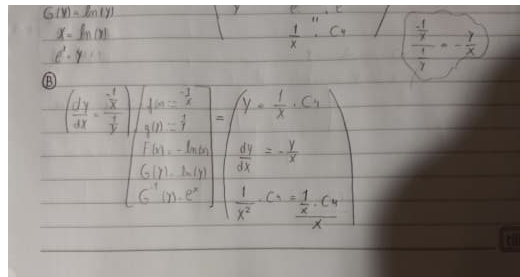 G(y) = ln(y)
x = ln(y)
e^x = y
1/x · C4
(-1/x)/(1/y) = -y/x
B
(dy/dx = (-1/x)/(1/y)) [f(x) := -1/x
g(y) := 1/y
F(x) = -ln(x)
G(y) = ln(y)
G^-1(y) = e^x] = (y = 1/x · C4
dy/dx = -y/x
1/x^2 · C4 = (1/x · C4)/x)